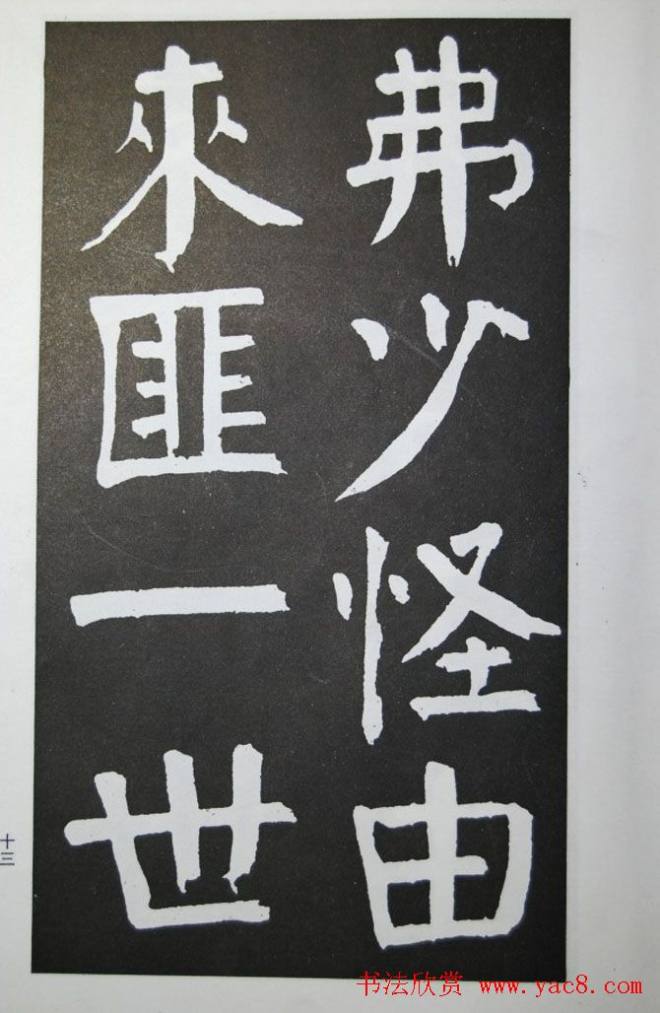 弗少怪由
來匪一世
十三
书法欣赏 www.yac8.com